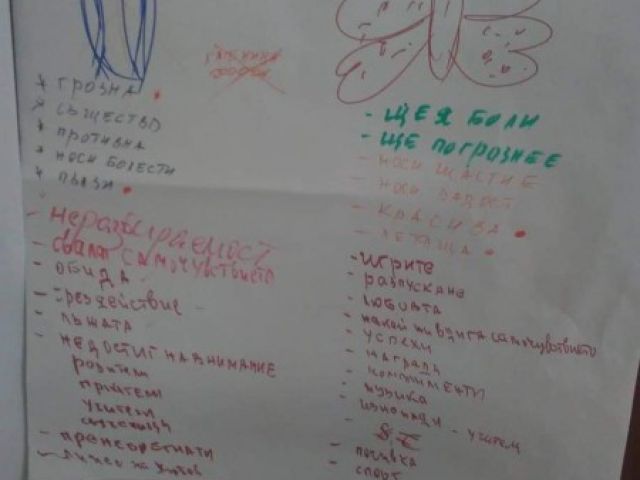 * ГРОЗНА
* СЪЩЕСТВО
* ПРОТИВНА
* НОСИ БОЛЕСТИ
* ПЪЛЗИ
- неразбираемост
- свалят САМОЧУВСТВИЕТО
- ОБИДА
- ЛЪЖАТА
- НЕДОСТИГ НА ВНИМАНИЕ
РОДИТЕЛИ
ПРИЯТЕЛИ
УЧИТЕЛИ
- ЩЕ Я БОЛИ
- ЩЕ ПОГРОЗНЕЕ
- НОСИ ЩАСТИЕ
- НОСИ РАДОСТ
- КРАСИВА
- ЛЕТЯЩА
- ИГРИТЕ
- РАЗПУСКАНЕ
- ЛЮБОВТА
- НЯКОЙ НИ ВДИГА САМОЧУВСТВИЕТО
- УСПЕХИ
- НАГРАДА
- КОМПЛИМЕНТИ
- МУЗИКА
- УЧИТЕЛ
- $ €
- ПОЧИВКА
- СПОРТ